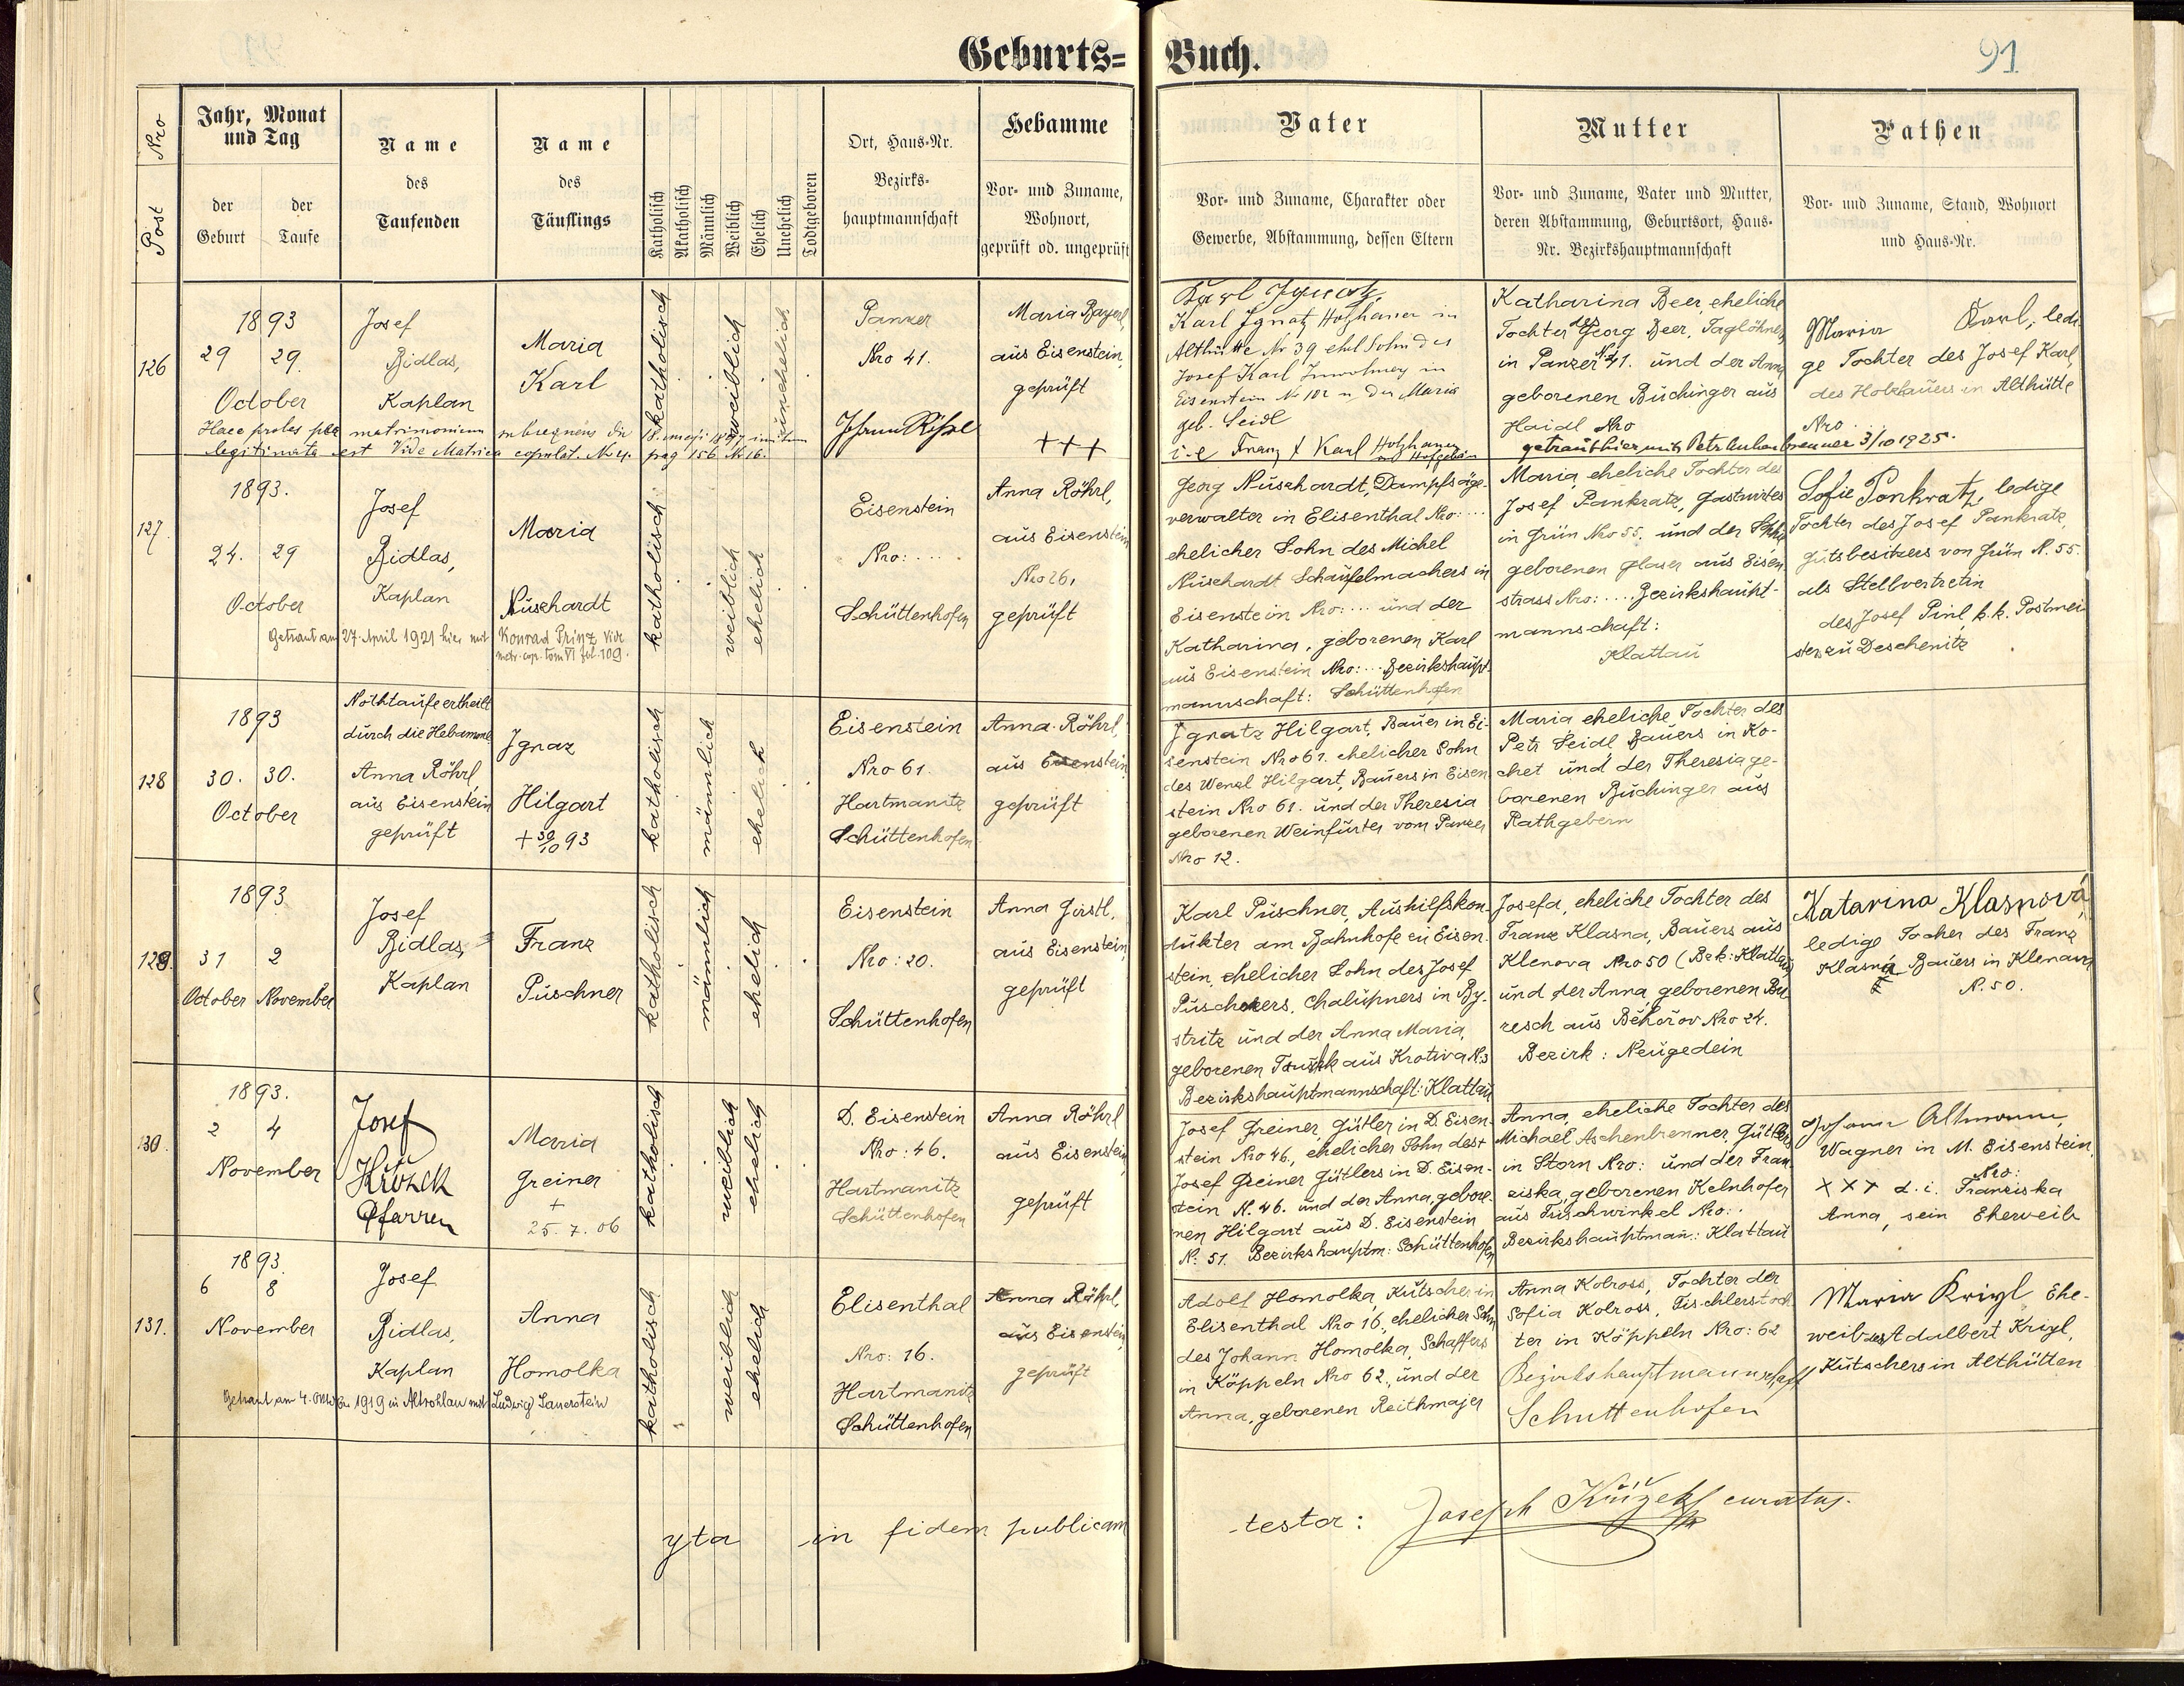 Geburts= Buch. 91
Post Nro
Jahr, Monat
und Tag
der Geburt
der Taufe
Name
des
Taufenden
Name
des
Täuflings
Katholisch
Akatholisch
Männlich
Weiblich
Ehelich
Unehelich
Todtgeboren
Ort, Haus-Nr.
Bezirks-
hauptmannschaft
Hebamme
Vor- und Zuname,
Wohnort,
geprüft od. ungeprüft
Vater
Vor- und Zuname, Charakter oder
Gewerbe, Abstammung, dessen Eltern
Mutter
Vor- und Zuname, Vater und Mutter,
deren Abstammung, Geburtsort, Haus-
Nr. Bezirkshauptmannschaft
Pathen
Vor- und Zuname, Stand, Wohnort
und Haus-Nr.
126
1893
29 29.
October
Josef
Bidlas,
Kaplan
Maria
Karl
katholisch
weiblich
unehelich
Panzer
Nro 41.
Maria Bayerl,
aus Eisenstein,
geprüft
+++
Karl Ignatz
Karl Ignatz Holzhauer in
Althütte Nr 39 ehel Sohn des
Josef Karl Inwohner in
Eisenstein No 102 u der Maria
geb. Seidl
i-e Franz X Karl Holzhauer
Katharina Beer, eheliche
Tochter des Georg Beer, Taglöhner,
in Panzer No 41. und der Anna
geborenen Buchinger aus
Haidl Nro
Maria Karl, ledi
ge Tochter des Josef Karl,
des Holzhauers in Althütte
Nro.
Haec proles per matrimonium subsequens die 18. 1897 initum
legitimata est Vide Matrica copulat. No 4. pag 156 No 16.
127.
1893.
24. 29
October
Josef
Bidlas,
Kaplan
Maria
Nuschardt
Getraut am 27. April 1921 hier mit Konrad Prinz vide
matr. cop. tom VI fol. 109.
katholisch
weiblich
ehelich
Eisenstein
Nro: ....
Schüttenhofen
Anna Röhrl,
aus Eisenstein
Nro 26,
geprüft
Georg Nuschardt, Dampfsäge-
verwalter in Elisenthal Nro: ...
ehelicher Sohn des Michel
Nuschardt Schaufelmachers in
Eisenstein Nro: ... und der
Katharina, geborenen Karl
aus Eisenstein Nro: ... Bezirkshaupt-
mannschaft: Schüttenhofen
Maria, eheliche Tochter des
Josef Pankratz, Gastwirtes
in Grün Nro 55. und der Sophie
geborenen Glaser aus Eisen
strass Nro: .... Bezirkshaupt-
mannschaft:
Klattau
Sofie Pankratz, ledige
Tochter des Josef Pankratz,
Gutsbesitzers von Grün N. 55.
als Stellvertretin
des Josef Pinl, k. k. Postmei-
sters zu Deschenitz
128
1893
30. 30.
October
Nothtaufe ertheilt
durch die Hebamme
Anna Röhrl
aus Eisenstein
geprüft
Ignaz
Hilgart
+ 30/10 93
katholisch
männlich
ehelich
Eisenstein
Nro 61.
Hartmanitz
Schüttenhofen
Anna Röhrl
aus Eisenstein,
geprüft
Ignatz Hilgart, Bauer in Ei-
senstein Nro 61. ehelicher Sohn
des Wenzl Hilgart, Bauers in Eisen
stein Nro 61. und der Theresia
geborenen Weinfurter vom Panzer
Nro 12.
Maria, eheliche Tochter des
Petr Seidl Bauers in Ko-
chet und der Theresia ge-
borenen Buchinger aus
Rathgebern
129.
1893
31 2
October November
Josef
Bidlas,
Kaplan
Franz
Puschner
katholisch
männlich
ehelich
Eisenstein
Nro: 20.
Schüttenhofen
Anna Gastl,
aus Eisenstein,
geprüft
Karl Puschner, Aushilfskon-
dukter am Bahnhofe zu Eisen-
stein, ehelicher Sohn des Josef
Puschners, Chalupners in By-
stritz und der Anna Maria,
geborenen aus Krotiva N. 3
Bezirkshauptmannschaft: Klattau
Josefa, eheliche Tochter des
Franz Klasna, Bauers aus
Klenova Nro 50 (Bzk: Klattau)
und der Anna, geborenen Bu
resch aus Běhořov Nro 24.
Bezirk: Neugedein
Katarina Klasnová,
ledige Tocher des Franz
Klasna Bauers in Klenau
N. 50.
130.
1893.
2 4
November
Josef
Křížek
Pfarrer
Maria
Greiner
+
25. 7. 06
katholisch
weiblich
ehelich
D. Eisenstein
Nro: 46.
Hartmanitz
Schüttenhofen
Anna Röhrl
aus Eisenstein,
geprüft
Josef Greiner, Gütler in D. Eisen-
stein Nro 46, ehelicher Sohn des +
Josef Greiner Gütlers in D. Eisen-
stein N. 46. und der Anna, gebore-
nen Hilgart aus D. Eisenstein
N. 51. Bezirkshauptm: Schüttenhofen
Anna, eheliche Tochter des
Michael Aschenbrenner, Gütlers
in Storn Nro: und der Fran-
ziska, geborenen Kelnhofer
aus Tuschwinkel Nro:.
Bezirkshauptman.: Klattau
Johann Altmann,
Wagner in M. Eisenstein,
Nro:
XXX d. i. Franziska
Anna, sein Eheweib
131.
1893.
6 8
November
Josef
Bidlas,
Kaplan
Anna
Homolka
Getraut am 4. 1919 in Altrohlau mit Ludwig Sauerstein
katholisch
weiblich
ehelich
Elisenthal
Nro: 16.
Hartmanitz
Schüttenhofen
Anna Röhrl,
aus Eisenstein,
geprüft
Adolf Homolka, Kutscher in
Elisenthal Nro 16., ehelicher Sohn
des Johann Homolka, Schaffers
in Köppeln Nro 62., und der
Anna, geborenen Reithmajer
Anna Kolross, Tochter der
Sofia Kolross, Tischlerstoch
ter in Köppeln Nro: 62
Bezirkshauptmannschaft
Schuttenhofen
Maria Krigl Ehe-
weib des Adalbert Krigl,
Kutschers in Althütten
yta in fidem publicam
testor: Joseph Křížek curatus.